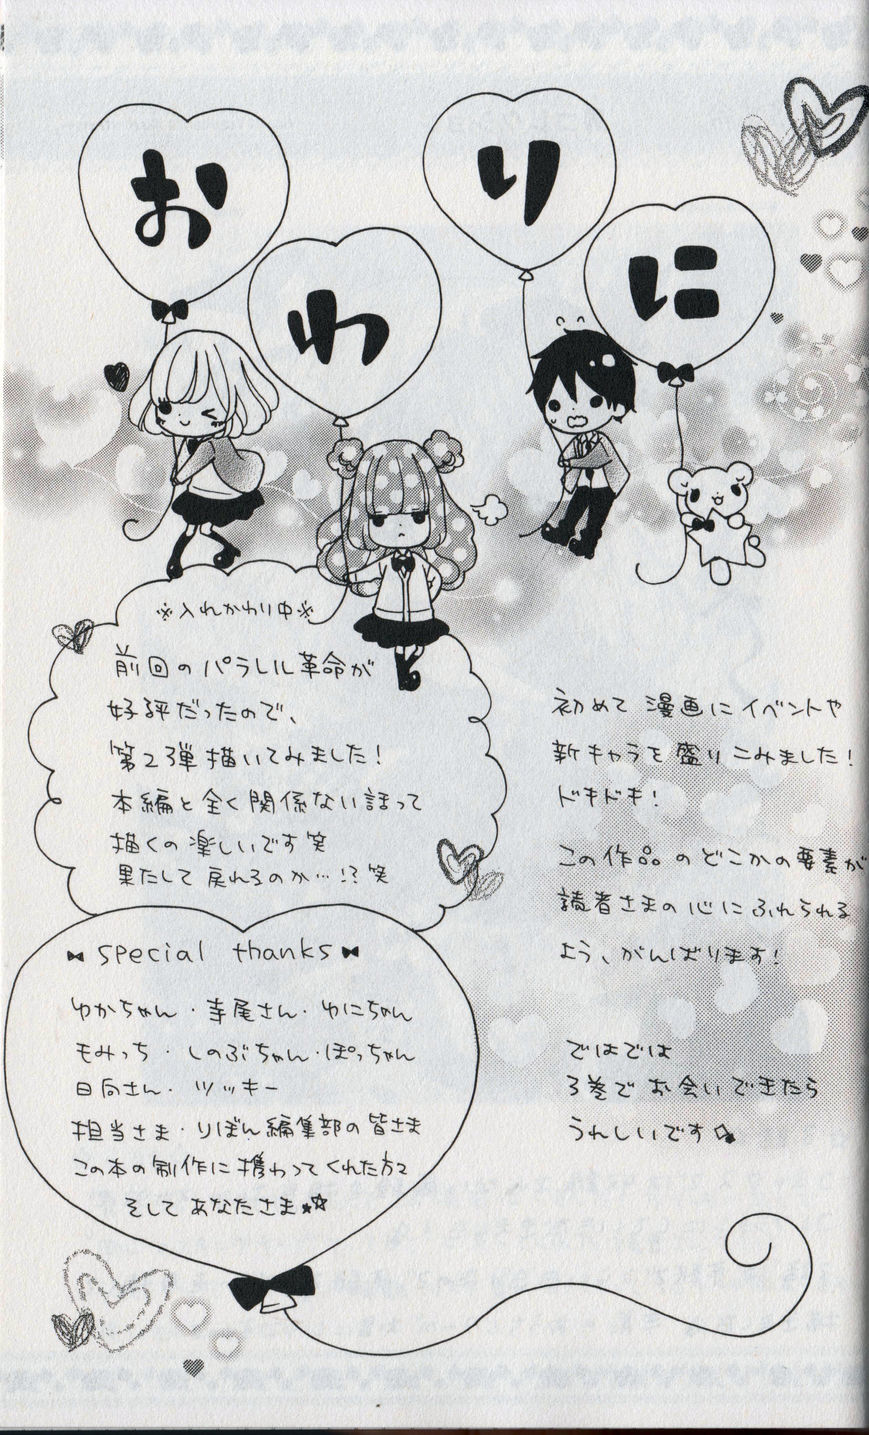 おわりに
※入れかわり中※
前回のパラレル革命が
好評だったので、
第2弾描いてみました!
本編と全く関係ない話って
描くの楽しいです笑
果たして戻れるのか…!?笑
初めて漫画にイベントや
新キャラを盛りこみました!
ドキドキ!
この作品のどこかの要素が
読者さまの心にふれられる
よう、がんばります!
ではでは
3巻でお会いできたら
うれしいです☆
special thanks
ゆかちゃん・寺尾さん・ゆにちゃん
もみっち・しのぶちゃん・ぽっちゃん
日向さん・ツッキー
担当さま・りぼん編集部の皆さま
この本の制作に携わってくれた方々
そしてあなたさま★☆